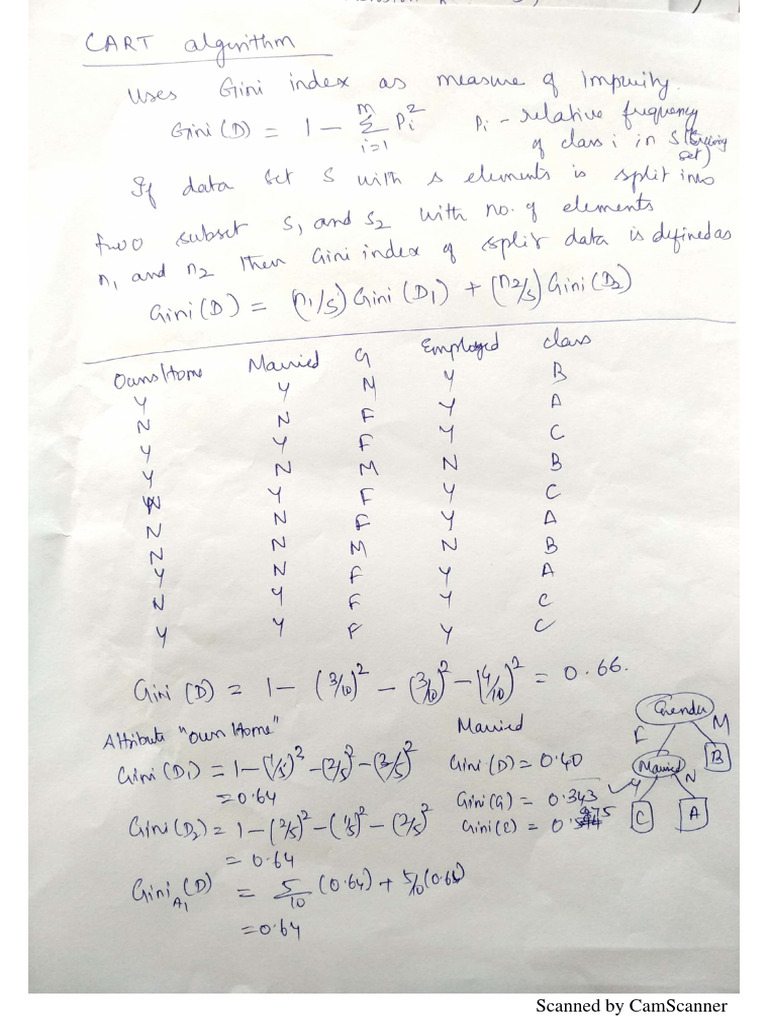 CART algorithm
Uses Gini index as measure of Impurity.
Gini(D) = 1 - Σ Pi² Pi - relative frequency
m
i=1
of class i in S (training
set)
If data set S with s elements is split into
two subset S1 and S2 with no. of elements
n1 and n2 then Gini index of split data is defined as
Gini(D) = (n1/s) Gini(D1) + (n2/s) Gini(D2)
Owns Home Married G Employed class
Y Y M Y B
N N F Y A
Y Y F Y C
Y N M N B
N Y F Y C
N N F Y A
N N M N B
Y N F Y A
N Y F Y C
Y Y F Y C
Gini(D) = 1 - (3/10)² - (3/10)² - (4/10)² = 0.66.
Attribute "Own Home" Married
Gini(D1) = 1 - (1/5)² - (2/5)² - (2/5)² Gini(D) = 0.40
= 0.64 Gini(G) = 0.343
Gini(D2) = 1 - (2/5)² - (1/5)² - (2/5)² Gini(E) = 0.475
= 0.64
Gini A1 (D) = 5/10 (0.64) + 5/10 (0.64)
= 0.64
Gender
F M
Married B
Y N
C A
Scanned by CamScanner